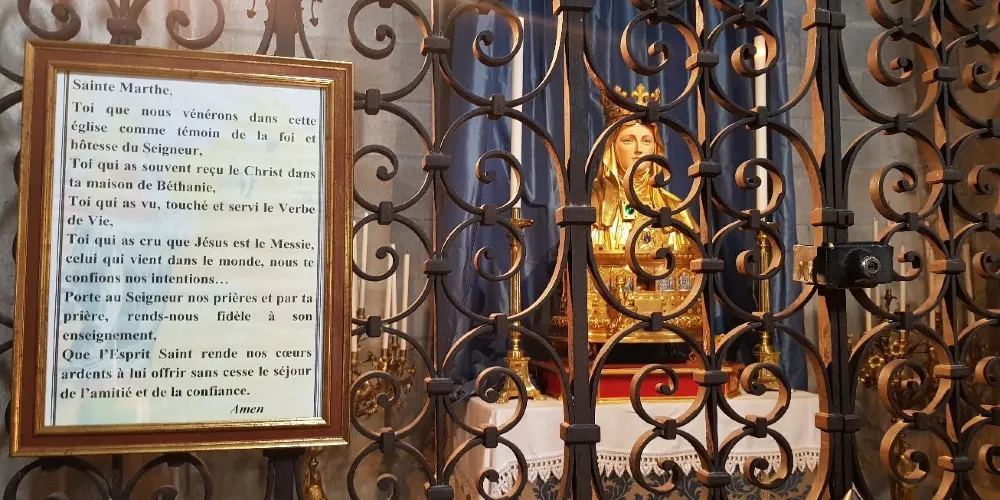 Sainte Marthe,
Toi que nous vénérons dans cette
église comme témoin de la foi et
hôtesse du Seigneur,
Toi qui as souvent reçu le Christ dans
ta maison de Béthanie,
Toi qui as vu, touché et servi le Verbe
de Vie,
Toi qui as cru que Jésus est le Messie,
celui qui vient dans le monde, nous te
confions nos intentions…
Porte au Seigneur nos prières et par ta
prière, rends-nous fidèle à son
enseignement,
Que l'Esprit Saint rende nos cœurs
ardents à lui offrir sans cesse le séjour
de l'amitié et de la confiance.
Amen